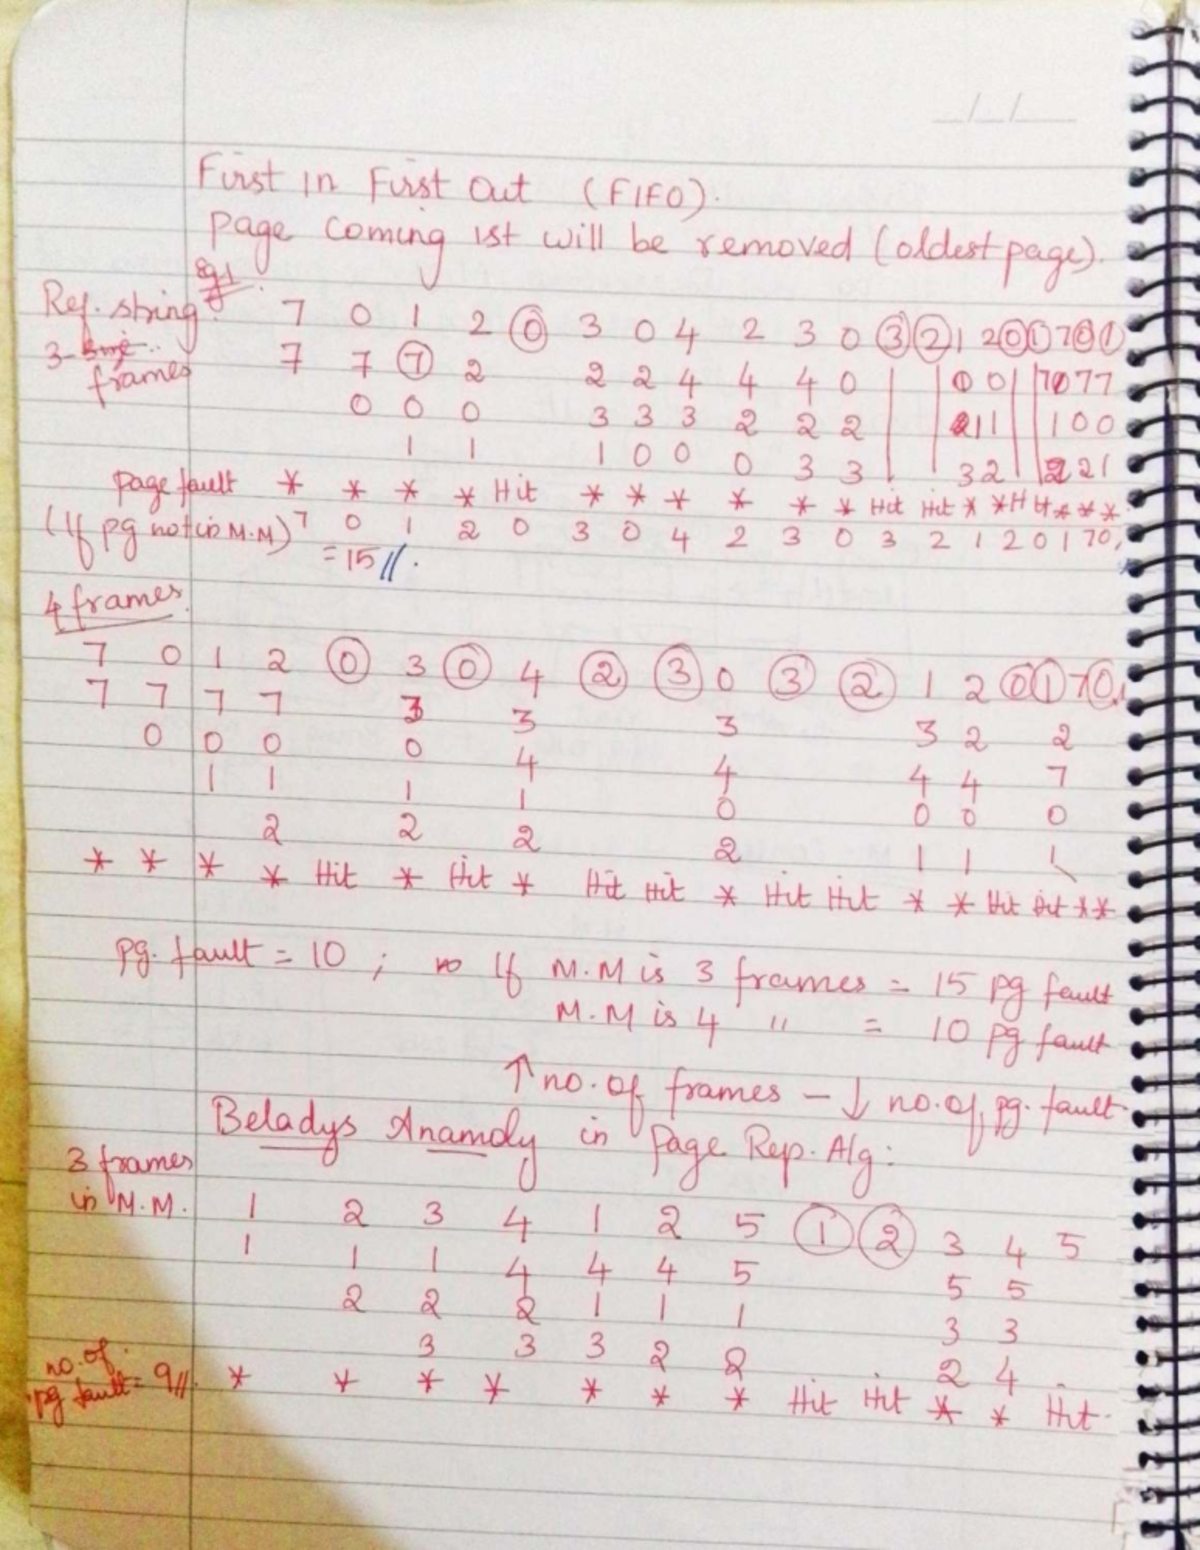 _/_/_
First in First Out (FIFO).
Page coming 1st will be removed (oldest page).
Eg.1
Ref. string 7 0 1 2 0 3 0 4 2 3 0 3 2 1 2 0 1 7 0 1
3- frames 7 7 7 2 2 2 4 4 4 0 0 0 7 7 7
0 0 0 3 3 3 2 2 2 1 1 1 0 0
1 1 1 0 0 0 3 3 3 2 2 2 1
Page fault * * * * Hit * * * * * * Hit Hit * * H H * * *
(If pg not in M.M) 7 0 1 2 0 3 0 4 2 3 0 3 2 1 2 0 1 7 0 1
= 15//.
4 frames
7 0 1 2 0 3 0 4 2 3 0 3 2 1 2 0 1 7 0 1
7 7 7 7 3 3 3 3 2 2
0 0 0 0 4 4 4 4 7
1 1 1 1 0 0 0 0
2 2 2 2 1 1 1
* * * * Hit * Hit * Hit Hit * Hit Hit * * Hit Hit * *
pg. fault = 10 ; If M.M is 3 frames = 15 pg fault
M.M is 4 " = 10 pg fault
↑ no. of frames - ↓ no. of pg. fault.
Beladys Anamoly in Page Rep. Alg:
3 frames
in M.M. 1 2 3 4 1 2 5 1 2 3 4 5
1 1 1 4 4 4 5 5 5
2 2 2 1 1 1 3 3
3 3 3 2 2 2 4
no. of
pg fault = 9// * * * * * * * Hit Hit * * Hit.